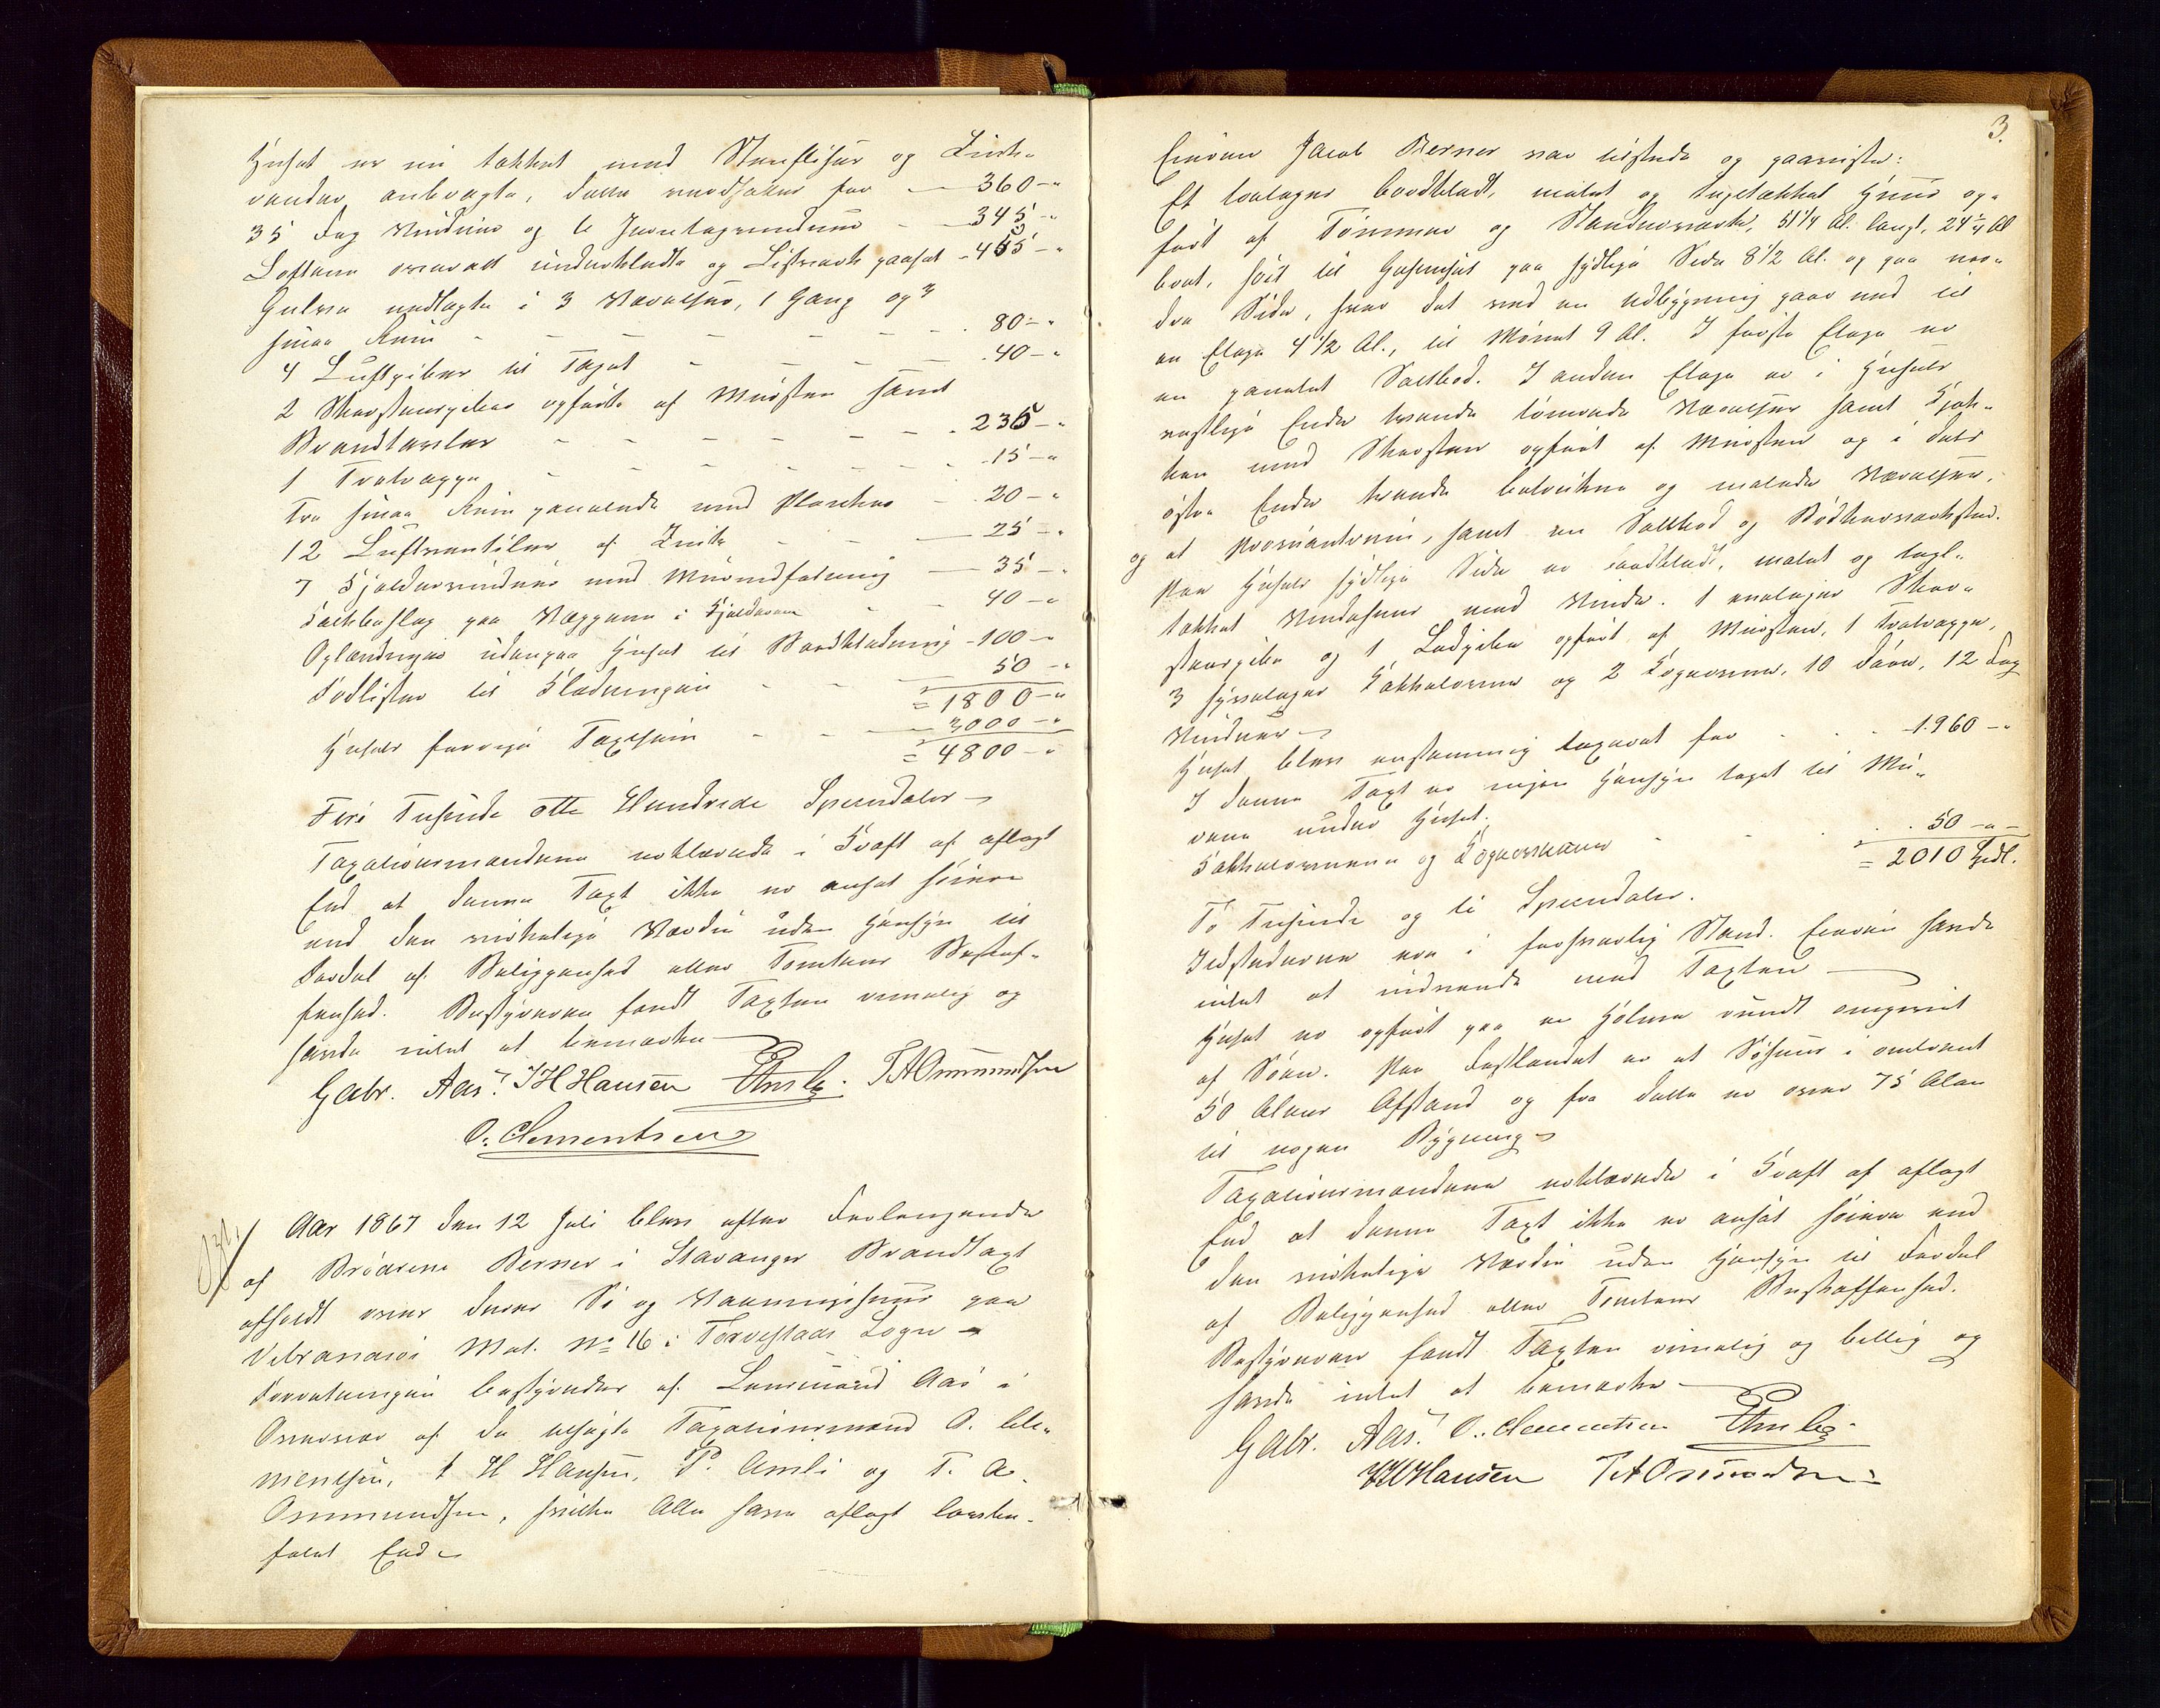 Huset er nu tækket med Steenfliser og Zink-
render anbragte, dette værdsættes for — 360 - "
35 Fag Vinduer og 6 Jerntagvinduer — 345 - "
Lofterne overalt underklædte og Listværk paasat - 455 - "
Gulve nedlagte i 3 Værelser, 1 Gang og 3
smaa Rum - - - - - - 80 - "
4 Luftpiber til Taget - - - - 40 - "
2 Skorsteenspiber opførte af Muursteen samt
Brandtavler - - - - - - 235 - "
1 Trætrappe - - - - - - 15 - "
Tre smaa Rum panelede med Planker - 20 - "
12 Luftventiler af Zink - - — 25 - "
7 Kjældervinduer med Muurindfatning — 35 - "
Kalkbeslag paa Væggene i Kjælderen - - 40 - "
Oplændinger udenpaa Huset til Bordklædning - 100 - "
Fodlister til Klædningen - - — 50 - "
= 1800 - "
Husets forrige Taxtsum - - — 3000 - "
= 4800 - "
Fire Tusinde otte Hundrede Speciedaler
Taxationsmændene erklærede i Kraft af aflagt
Eed at denne Taxt ikke er ansat høiere
end den virkelige Værdie uden Hensyn til
Fordel af Beliggenhed eller Tomtens Beskaf-
fenhed. Bestyreren fandt Taxten rimelig og
havde intet at bemærke
Gabr. Aas. J H Hansen P Amli. T A Ommundsen
O. Clementsen
Aar 1867 den 12 Juli blev efter Forlangende
af Brødrene Berner i Stavanger Brandtaxt
afholdt over deres Sø og Vaaningshuus paa
Vibrandsøi Mat. No 16 i Torvestads Sogn
Forretningen bestyredes af Lensmand Aas i
Overvær af de udsagte Taxationsmænd O. Cle-
mentsen, J H Hansen, P. Amli og T. A.
Ommundsen, hvilke Alle have aflagt lovbe-
falet Eed
3.
Eieren Jacob Berner var tilstede og paaviste:
Et toetages bordklædt, malet og tegltækket Huus op-
ført af Tømmer og Stænderværk, 51 1/4 Al. langt, 24 1/4 Al
bredt, høit til Gesimset paa sydlige Side 8 1/2 Al. og paa nor-
dre Side, hvor det ved en Udbygning gaar ned til
en Etage 4 1/2 Al., til Mønet 9 Al. I første Etage er
en panelet Saltbod. I anden Etage er i Husets
vestlige Ende tvende tømrede Værelser samt Kjøk-
ken med Skorsteen opført af Muursteen og i dets
østre Ende tvende betrukne og malede Værelser,
og et Proviantrum, samt en Saltbod og Bødkerværksted.
Paa Husets sydlige Side er bordklædt, malet og tegl-
tækket Vindehuus med Vinde. 1 enetages Skor-
steenspibe og 1 Ladpibe opført af Muursteen, 1 Trætrappe,
3 tyvetages Kakkelovne og 2 Kogeovne, 10 Døre, 12 Fag
Vinduer
Huset blev enstemmig taxeret for - - - 1960 - "
I denne Taxt er ingen Hensyn taget til Mu-
rene under Huset.
Kakkelovnene og Kogeovnene - - - 50 - " -
= 2010 Spdl.
To Tusinde og ti Speciedaler.
Ildstederne ere i forsvarlig Stand. Eieren havde
intet at indvende mod Taxten
Huset er opført paa en Holme rundt omgivet
af Søen. Paa Fastlandet er et Søhuus i omtrent
50 Alens Afstand og fra dette er over 75 Alen
til nogen Bygning
Taxationsmændene erklærede i Kraft af aflagt
Eed at denne Taxt ikke er ansat høiere end
den virkelige Værdie uden Hensyn til Fordel
af Beliggenhed eller Tomtens Beskaffenhed.
Bestyreren fandt Taxten rimelig og billig og
havde intet at bemærke
Gabr. Aas. O. Clementsen P Amli
J H Hansen T A Ommundsen